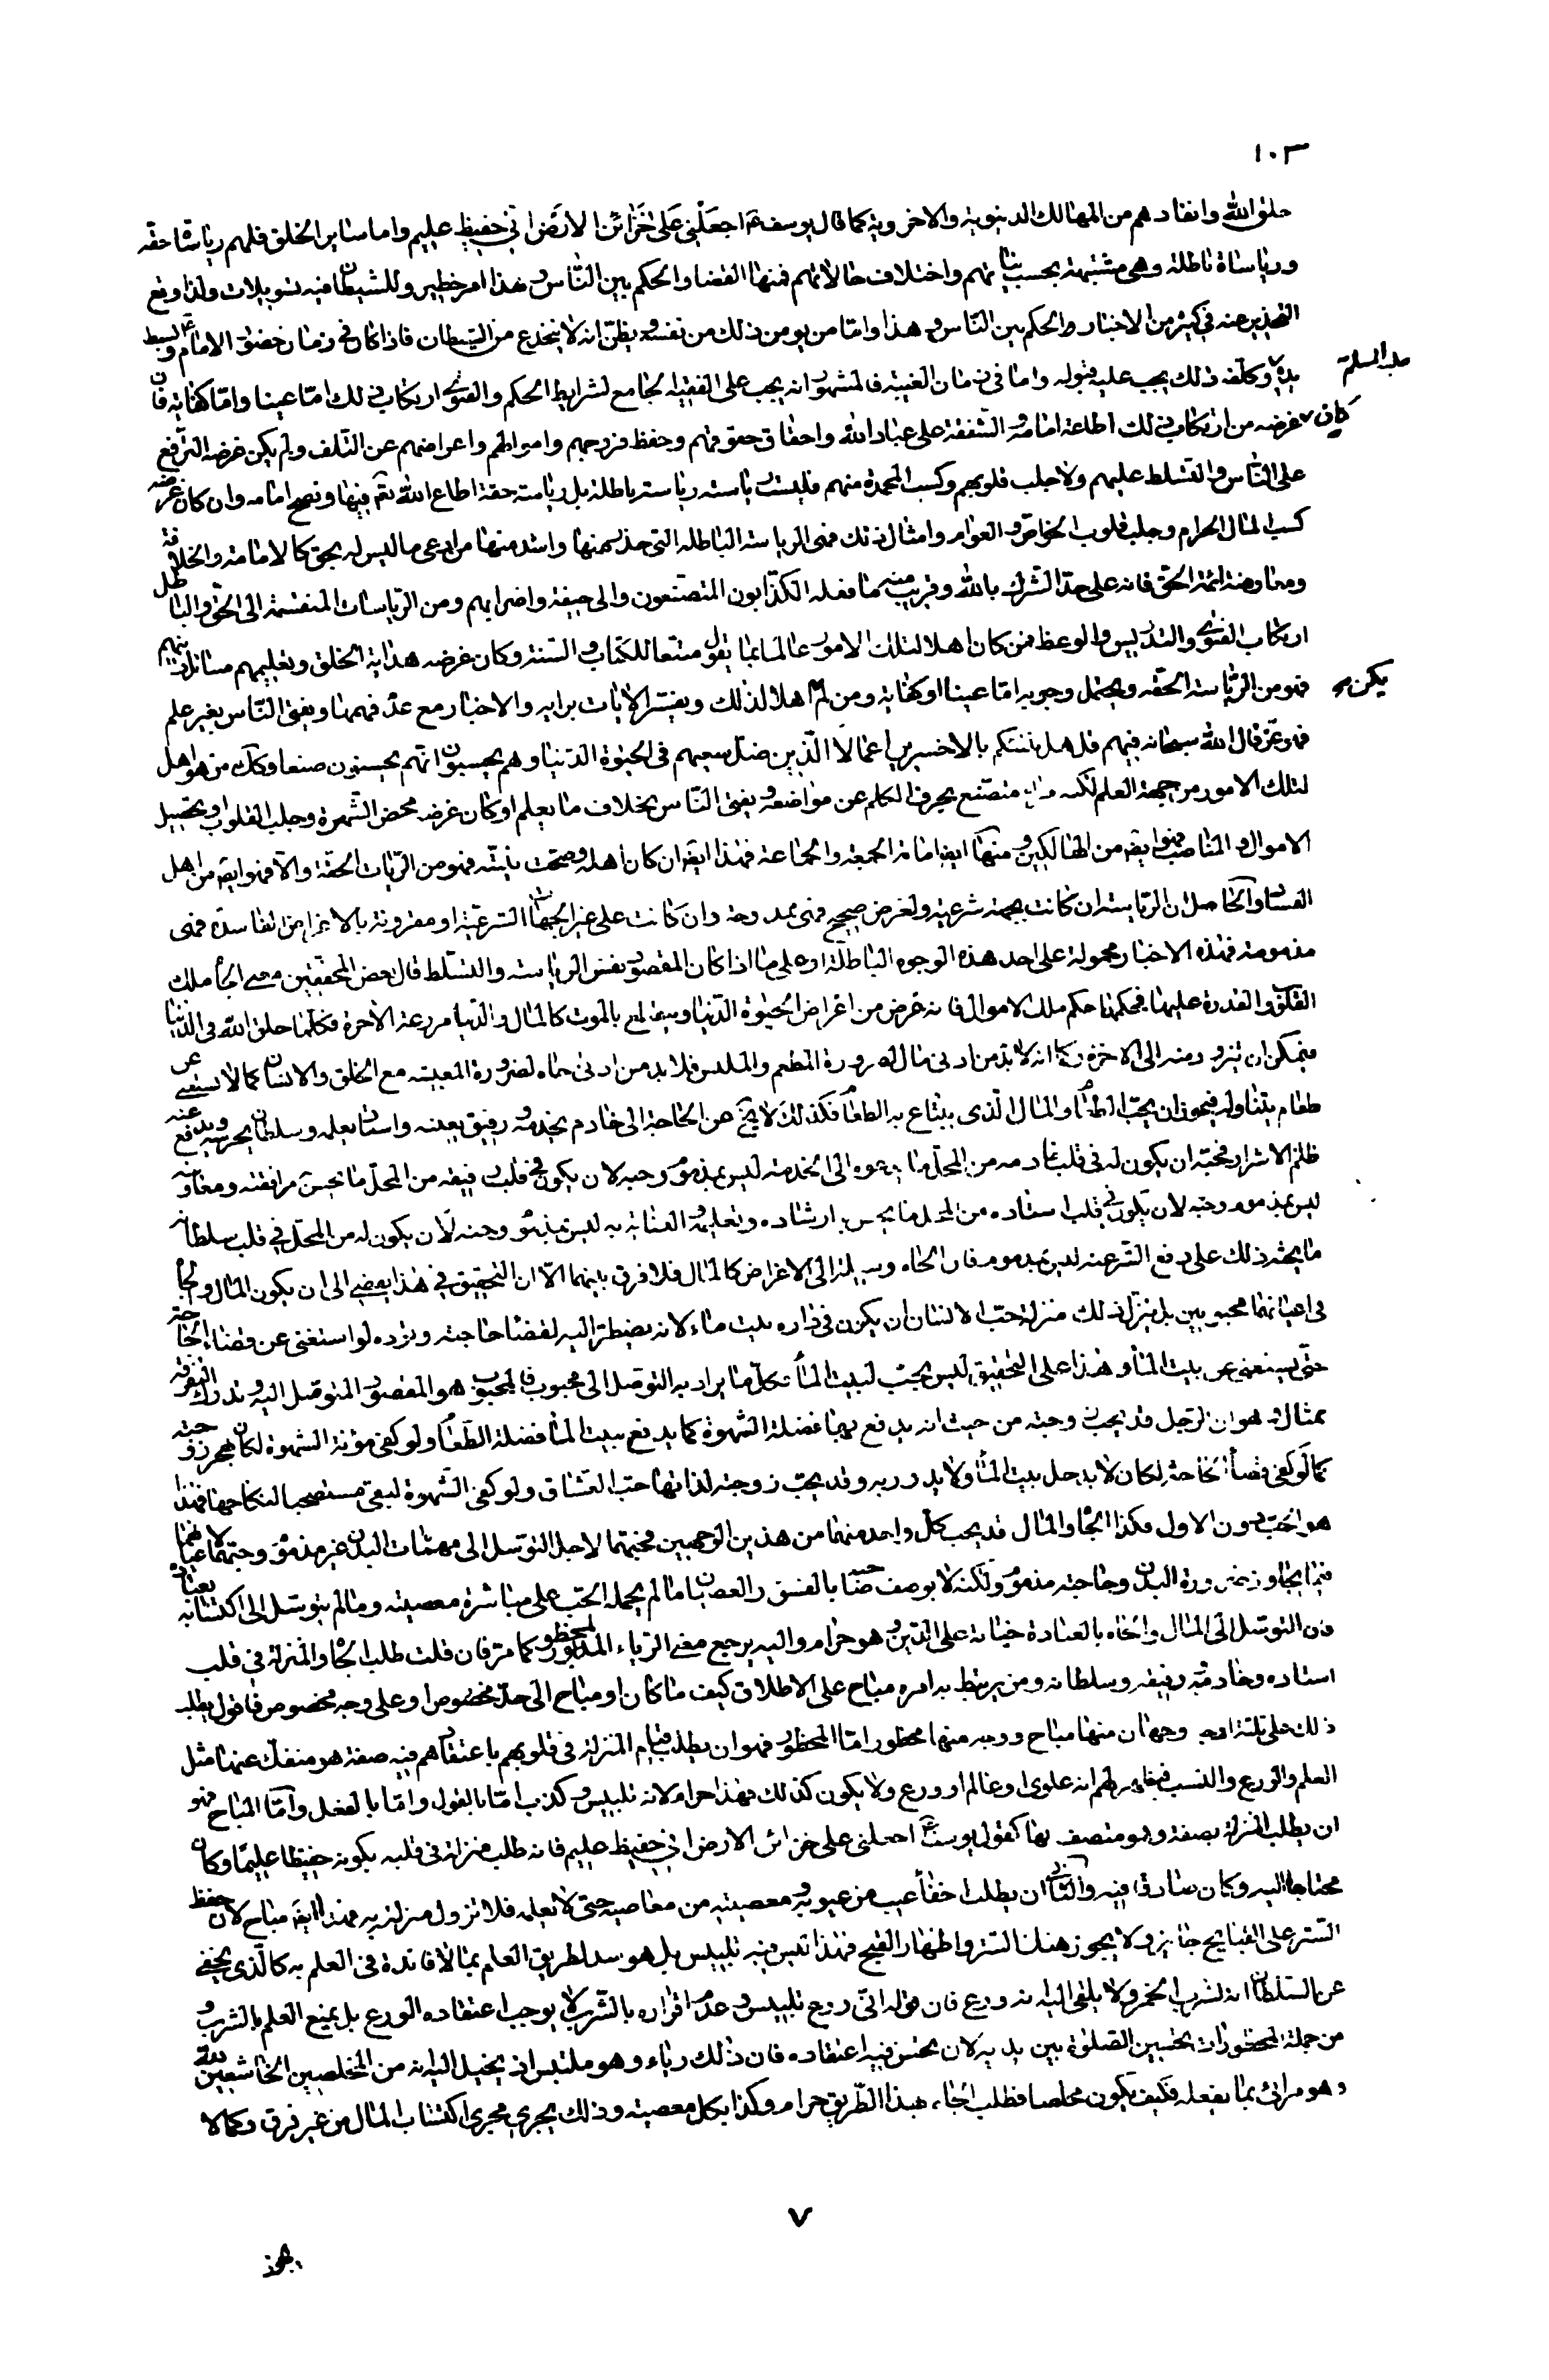 ١٠٣
خلق الله وانقاذهم من المهالك الدنيوية والاخروية كما قال يوسف ع اجعلنى على خزائن الارض انى حفيظ عليم واما ساير الخلق فلهم رياسات حقه
ورياسات باطلة وهى مشتبهة بحسب نياتهم واختلاف حالاتهم فمنها القضا والحكم بين الناس وهذا امر خطير وللشيطان فيه تسويلات ولذا وقع
التحذير عنه فى كثير من الاخبار والحكم بين الناس وهذا واما من يومن ذلك من نفسه ويظن انه لا ينخدع من الشيطان فاذا كان فى زمان حضور الامام ع وبسط
عليه السلم
يده وكلفه ذلك يجب عليه قبوله واما فى زمان الغيبة فالمشهور انه يجب على الفقيه الجامع لشرايط الحكم والفتوى ارتكاب ذلك اما عينا واما كفاية فان
كان غرضه من ارتكاب ذلك اطاعة امامه والشفقة على عباد الله واحقاق حقوقهم وحفظ فروجهم واموالهم واعراضهم عن التلف ولم يكن غرضه الترفع
على الناس والتسلط عليهم ولا جلب قلوبهم وكسب المحمدة منهم فليست رياسته رياسة باطلة بل رياسة حقة اطاع الله تع فيها ونصح امامه وان كان غرضه
كسب المال الحرام وجلب قلوب الخواص والعوام وامثال ذلك فهى الرياسة الباطلة التى حذر منها واشد منها من ادعى ما ليس له بحق كالامامة والخلافة
ومعارضة ائمة الحق فانه على حد الشرك بالله وقريب منه ما فعله الكذابون المتصنعون والى حنيفة واضرابهم ومن الرياسات المنقسمة الى الحق والباطل
ارتكاب الفتوى والتدريس والوعظ فمن كان اهلا لتلك الامور عالما بما يقول متبعا للكتاب والسنة وكان غرضه هداية الخلق وتعليمهم مسائل دينهم
فهو من الرياسة الحقه ويحتمل وجوبه اما عينا او كفاية ومن لم اهلا لذلك ويفسر الايات برايه والاخبار مع عدم فهمها ويفتى الناس بغير علم
يكن
فهو ممن قال الله سبحانه فيهم قل هل ننبئكم بالاخسرين اعمالا الذين ضل سعيهم فى الحيوة الدنيا وهم يحسبون انهم يحسنون صنعا وكذلك من هو اهل
لتلك الامور من جهة العلم لكنه متصنع يحرف الكلم عن مواضعه ويفتى الناس بخلاف ما يعلم او كان غرضه محض الشهرة وجلب القلوب او تحصيل
الاموال والمناصب فهو ايضا من الهالكين ومنها ايضا امامة الجمعة والجماعة فهذا ايضا ان كان اهله وصحت نيته فهو من الرياسات الحقة والا فهو ايضا من اهل
الفساد والحاصل ان الرياسة ان كانت بجهة شرعية ولغرض صحيح فهى ممدوحة وان كانت على غير الجهات الشرعية او مقرونة بالاغراض الفاسدة فهى
مذمومة فهذه الاخبار محمولة على احد هذه الوجوه الباطلة او على ما اذا كان المقصود نفس الرياسة والتسلط قال بعض المحققين معنى الجاه ملك
القلوب والقدرة عليها فحكمها حكم ملك الاموال فانه غرض من اغراض الحيوة الدنيا وينقطع بالموت كالمال والدنيا مزرعة الاخرة فكلما خلق الله فى الدنيا
فيمكن ان يتزود منه الى الاخرة وكما انه لا بد من ادنى مال لضرورة المطعم والملبس فلا بد من ادنى جاه لضرورة المعيشة مع الخلق والانسان كما لا يستغنى عن
طعام يتناوله فيجوز ان يحب الطعام والمال الذى يبتاع به الطعام فكذلك لا يخ عن الحاجة الى خادم يخدمه ورفيق يعينه واستاد يعلمه وسلطان يحرسه ويدفع عنه
ظلم الاشرار فحبه ان يكون له فى قلب خادمه من المحل ما يدعوه الى الخدمة ليس بمذموم وحبه لان يكون فى قلب رفيقه من المحل ما يحسن مرافقته ومعاونته
ليس بمذموم وحبه لان يكون فى قلب استاده من المحل ما يحسن به ارشاده وتعليمه والعناية به ليس بمذموم وحبه لان يكون له من المحل فى قلب سلطانه
ما يحثه ذلك على دفع الشر عنه ليس بمذموم فان الجاه وسيلة الى الاغراض كالمال فلا فرق بينهما الا ان التحقيق فى هذا يفضى الى ان يكون المال والجاه
فى اعيانهما محبوبين بل ينزل ذلك منزلة حب الانسان ان يكون فى داره بيت ماء لانه يضطر اليه لقضاء حاجته ويوده لو استغنى عن قضاء الحاجة
حتى يستغنى عن بيت الماء وهذا على التحقيق ليس بحب لبيت الماء فكل ما يراد به التوصل الى محبوب فالمحبوب هو المقصود المتوصل اليه وتدرك التفرقة
بمثال وهو ان الرجل قد يحب زوجته من حيث انه يدفع بها فضلة الشهوة كما يدفع ببيت الماء فضلة الطعام ولو كفى مؤنة الشهوة لكان يهجر زوجته
كما لو كفى قضاء الحاجة لكان لا يدخل بيت الماء ولا يدور به وقد يحب زوجته لذاتها حب العشاق ولو كفى الشهوة لبقى مستصحبا لنكاحها فهذا
هو الحب دون الاول وكذا الجاه والمال قد يحب كل واحد منهما من هذين الوجهين فحبهما لاجل التوسل الى مهمات البدن غير مذموم وحبهما لاعيانهما
فيما يجاوز ضرورة البدن وحاجته مذموم ولكنه لا يوصف صاحبه بالفسق والعصيان ما لم يحمله الحب على مباشرة معصية وما لم يتوسل الى اكتسابه بعبادة
فان التوسل الى المال والجاه بالعبادة جناية على الدين وهو حرام واليه يرجع معنى الرياء المحظور كما مر فان قلت طلب الجاه والمنزلة فى قلب
استاده وخادمه ورفيقه وسلطانه ومن يرتبط به امره مباح على الاطلاق كيف ما كان او مباح الى حد مخصوص او على وجه مخصوص فاقول يطلب
ذلك على ثلثة اوجه وجهان منها مباح ووجه منها محظور اما المحظور فهو ان يطلب قيام المنزلة فى قلوبهم باعتقادهم فيه صفة هو منفك عنها مثل
العلم والورع والنسب فيظهر لهم انه علوى او عالم او ورع ولا يكون كذلك فهذا حرام لانه تلبيس وكذب اما بالقول واما بالفعل واما المباح فهو
ان يطلب المنزلة بصفة وهو متصف بها كقول يوسف ع اجعلنى على خزائن الارض انى حفيظ عليم فانه طلب منزلة فى قلبه بكونه حفيظا عليما وكان
محتاجا اليه وكان صادقا فيه والثانى ان يطلب اخفاء عيب من عيوبه ومعصيته من معاصيه حتى لا يعلمه فلا تزول منزلته به فهذا ايضا مباح لان حفظ
الستر على القبايح جائز ولا يجوز هتك الستر واظهار القبيح فهذا ليس فيه تلبيس بل هو سد لطريق العلم بما لا فائدة فى العلم به كالذى يخفى
عن السلطان انه يشرب الخمر ولا يلقى اليه انه ورع فان قوله انى ورع تلبيس وعدم اقراره بالشرب لا يوجب اعتقاده الورع بل يمنع العلم بالشرب و
من جملة المحظورات تحسين الصلوة بين يديه لان يحسن فيه اعتقاده فان ذلك رياء وهو ملتبس اذ يخيل اليه انه من المخلصين الخاشعين لله
وهو مرائى بما يفعله فكيف يكون مخلصا فطلب الجاه بهذا الطريق حرام وكذا بكل معصية وذلك يجرى مجرى اكتساب المال من غير فرق وكما لا
٧
يجوز